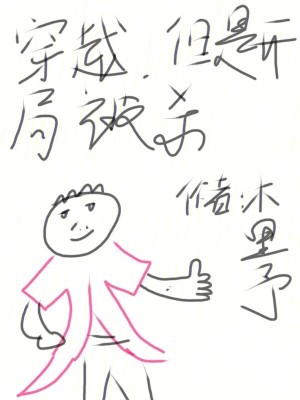 穿越,但是开
局被杀
作者:木
里
予